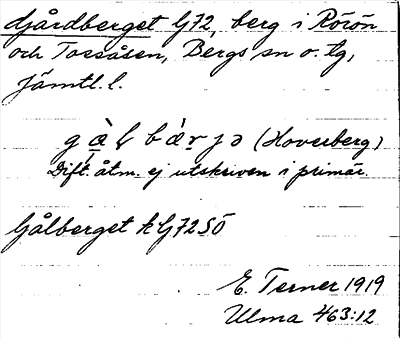 Gårdberget G72, berg i Rörön
och Tossåsen, Bergs sn o. tg,
Jämtl. l.
(Hoverberg)
Dift. åtm. ej utskriven i primär.
Gålberget k G72SÖ
E. Terner 1919
Ulma 463:12